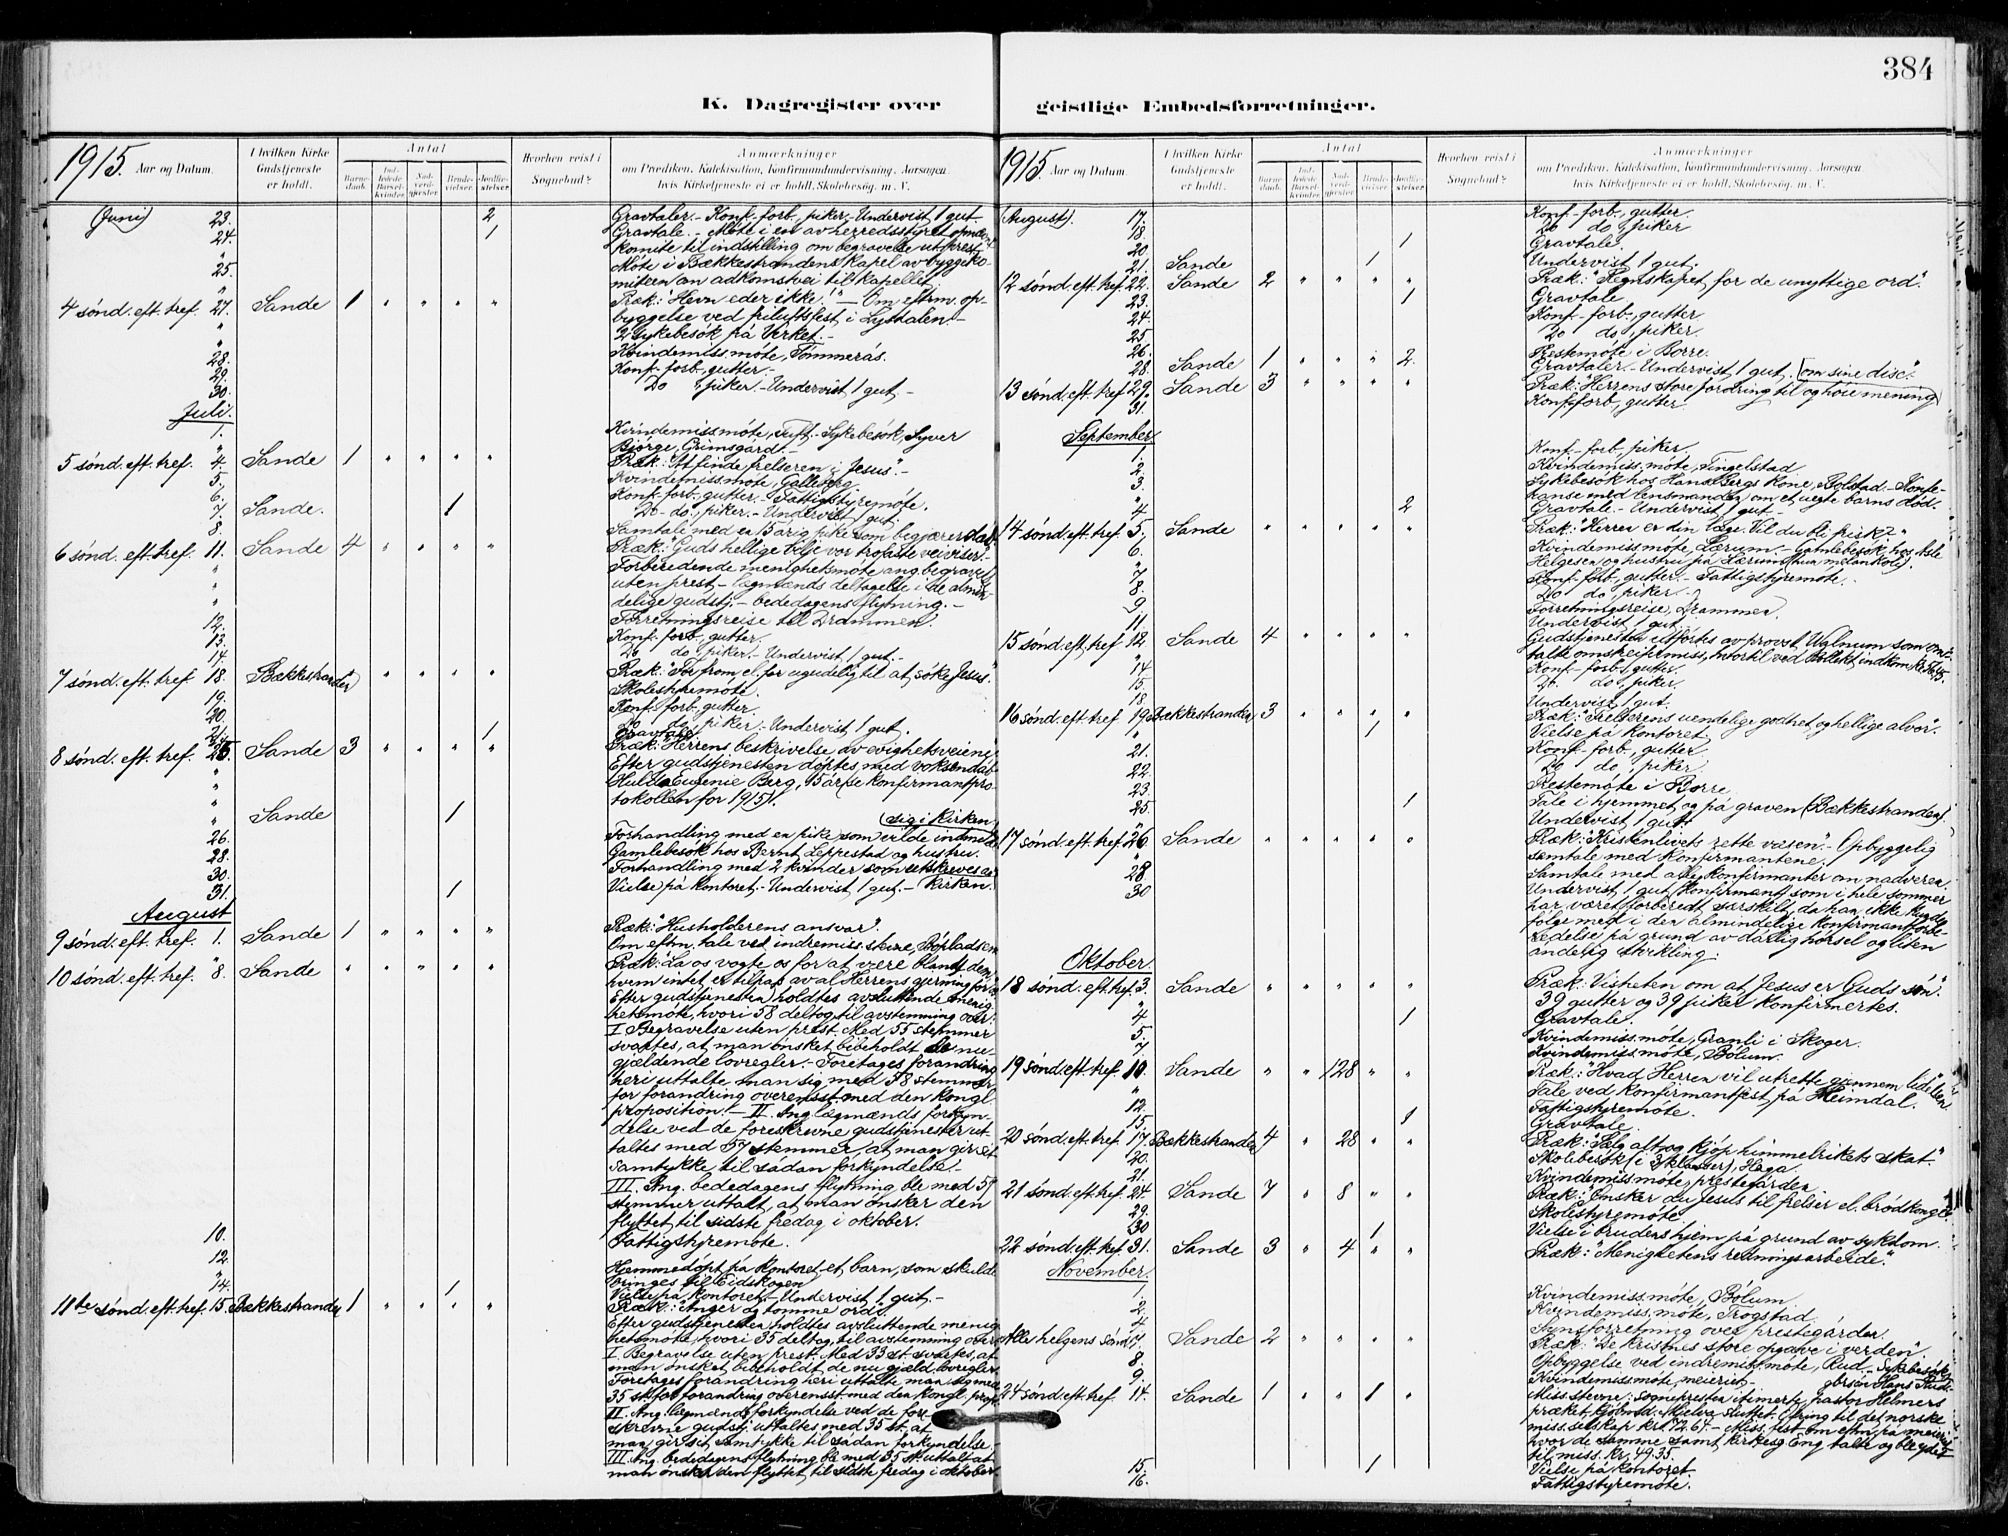 384
K. Dagregister over geistlige Embedsforretninger.
1915. Aar og Datum. I hvilken Kirke Gudstjeneste er holdt. Antal Hvorhen reist i Sognebud? Anmærkninger
Barnedaab. Indledede Barselkvinder. Nadverdgjester. Brudevielser. Jordfæstelser.
om Prædiken, Katekisation, Konfirmandundervisning, Aarsagen
hvis Kirketjeneste ei er holdt, Skolebesøg m. V.
(Juni) 23. 2 Gravtaler. - Konf.-forb., piker. - Undervist 1 gut
24. 1 Gravtale. - Møte i en av herredsstyret
komite til indstilling om begravelse ut. prest
25. Møte i Bækkestrandens kapel av byggeko-
miteen an adkomstvei til kapellet.
4 sønd. eft. tref. 27. Sande 1 " " " " Præk: "Hevn eder ikke!" - Om eftrm. op-
byggelse ved friluftsfest i Lystdalen. -
" 2 sykebesøk på Verket. -
28. Kvindemiss.møte, Tømmerås.
29. Konf.-forb., gutter. -
30. Do piker. - Undervist 1 gut -
Juli.
1. Kvindemiss.møte, Tuft. - Sykebesøk, Syver
" Bjørge, Grimsgård. -
5 sønd. eft. tref. 4. Sande 1 " " " " Præk: "At finde frelseren i Jesus. -
5. Kvindemiss.møte, Galleberg.
6. Konf.-forb., gutter. - Fattigstyremøte.
7. Sande. 1 Do - do, piker. - Undervist 1 gut.
8. Samtale med en 15 årig pike som begjærer dåb
6 sønd. eft. tref. 11. Sande 4 " " " " Præk: "Guds hellige vilje vor trofaste veiviser. -
" Forberedende menighetsmøte ang. begravel
" uten prest - lægmænds deltagelse i de almin-
" delige gudstj. - bededagens flytning. -
12. Forretningsreise til Drammen.
13. Konf. forb., gutter.
14. Do do, piker. - Undervist 1 gut. -
7 sønd. eft. tref. 18. Bækkestranden " " " " Præk: "For from el. for ugudelig til at søke Jesus."
19. Skolestyremøte.
20. Konf-forb., gutter
21. Do do, piker. Undervist 1 gut.
1 Gravtale
8 sønd. eft. tref. 25. Sande 3 " " " " Præk: "Herrens beskrivelse av evighetsveiene
" Efter gudstjenesten døptes, med voksendåb
Hulda Eugenie Berg, 15 år (se konfirmantpro-
" tokollen for 1915).
" Sande 1 (sig i Kirken
26. Forhandling med en pike som vilde indmelde
28. Gamlebesøk hos Bernt Leppestad og hustru.
30. Forhandling med 2 kvinder som utskreves av
31. 1 Vielse på kontoret. - Undervist 1 gut. - Kirken.
August
9 sønd. eft. tref. 1. Sande 1 " " " " Præk: "Husholderens ansvar".
" Om eftm. tale ved indremiss.
10 sønd. eft. tref. 8. Sande " " " " " Præk: "La os vogte os for at være blandt dem,
hvem intet er tilpas av al Herrens gjerning for
Efter gudstjenesten holdtes avsluttende menig
hetsmøte, hvori 58 deltog til avstemning over:
I Begravelse uten prest. Med 55 stemmer
svartes, at man ønsket bibeholdt de nu-
gjældende lovregler. - Foretages forandring
heri uttalte man sig med 58 stemmer
for forandring overensst. med den kongl.
proposition. - II. Ang. lægmænds forkyn-
delse ved de foreskrevne gudstjenester ut-
taltes med 57 stemmer, at man gir sit
samtykke til sådan forkyndelse. -
III. Ang. bededagens flytning ble med 57
stemmer uttalt, at man ønsker den
flyttet til sidste fredag i oktober.
10. Fattigstyremøte.
12. Hjemmedøpt på kontoret et barn, som skulde
" bringes til Eidskogen
14. 1 Vielse på kontoret. - Undervist 1 gut. -
11te sønd. eft. tref. 15. Bækkestranden 1 " " " " Præk: "Anger og tomme ord."
Efter gudstjenesten holdtes avsluttende menig
hetsmøte, hvori 35 deltog til avstemning over
I Begravelse uten prest. Med 33 st. svartes, at
man ønsket bibeholdt de nu gjæld. lovregler.
Foretages forandring heri uttalte man sig med
35 st. for forandring overensst. med den kongl. prop.
II. Ang. lægmænds forkyndelse ved de fore-
skrevne gudstj. uttaltes med 35 st., at
man gir sit samtykke til sådan forkyndelse. -
III. Ang. bededagens flytning ble med 35 st. uttalt at
man ønsker den flyttet til sidste fredag i oktober.
1915 Aar og Datum. I hvilken Kirke Gudstjeneste er holdt. Antal Hvorhen reist i Sognebud? Anmærkninger
Barnedaab. Indledede Barselkvinder. Nadverdgjester. Brudevielser. Jordfæstelser.
om Prædiken, Katekisation, Konfirmandundervisning, Aarsagen
hvis Kirketjeneste ei er holdt, Skolebesøg m. V.
(August). 17. Konf.-forb., gutter.
18. Do do, piker
20. 1 Gravtale.
21. Sande 1 Undervist 1 gut.
12 sønd. eft. tref. 22. Sande 2 " " " " Præk: "Regnskapet for de unyttige ord".
23. 1 Gravtale
24. Konf-forb., gutter
25. Do do, piker.
26. Prestemøte i Borre.
28. Sande 1 " " " 2 Gravtaler. - Undervist 1 gut. (om sine disc."
13 sønd. eft. tref. 29. Sande 3 " " " " Præk: "Herrens store fordring til og høie mening
31. Konf-forb., gutter
September
1. Konf-forb., piker
2. Kvindemiss.møte, Tingelstad
3. Sykebesøk hos Hans Bergs kone, Bolstad. - Konfe-
" ranse med lensmanden om et uegte barns død. -
4. 2 Gravtale. - Undervist 1 gut. -
14 sønd. eft. tref. 5. Sande " " " " " Præk: "Herren er din læge. Vil du bli frisk?"
6. Kvindemiss.møte, Lærum. - Gamlebesøk hos Asle
" Helgesen og hustru på Lærum (hun melankoli).
7. Konf-forb., gutter. - Fattigstyremøte.
8. Do do, piker. -
9. Forretningsreise, Drammen.
11. Undervist 1 gut.
15 sønd. eft. tref. 12. Sande 4 " " " " Gudstjenesten utførtes av provst Walnum som
14. Konf-forb., gutter.
15. Do do, piker.
18. Undervist 1 gut.
16 sønd. eft. tref. 19. Bækkestranden 3 " " " " Præk: "Frelserens uendelige godhet og hellige alvor".
" 1 Vielse på kontoret.
21. Konf-forb., gutter
22. Do do, piker.
23. Prestemøte i Borre
25. 1 Tale i hjemmet og på graven (Bækkestranden).
" Undervist 1 gut
17 sønd. eft. tref. 26. Sande " " " " " Præk: "Kristenlivets rette væsen". - Opbyggelig
" samtale med konfirmantene.
28. Samtale med alle konfirmanter om nadveren.
30 Undervist 1 gut (konfirmant) som i hele sommer
har været forberedt særskilt, da han ikke kunde
følge med i den almindelige konfirmantforbe-
redelse på grund av dårlig hørsel og liten
andelig utvikling.
Oktober.
18 sønd. eft. tref. 3. Sande " " " " " Præk: "Visheten om at Jesus er Guds søn".
" 39 gutter og 39 piker konfirmertes.
4. 1 Gravtale.
5. Kvindemiss.møte, Granli i Skoger.
7. Kvindemiss.møte, Bølum.
19 sønd. eft. tref. 10. Sande " " 128 " " Præk: "Hvad Herren vil utrette gjennem lidelsen"
" Tale ved konfirmantfest på Heimdal.
12. Fattigstyremøte.
15. 1 Gravtale.
20 sønd. eft. tref. 17. Bækkestranden 4 " 28 " " Præk: "Sælg alt og kjøp himmelrikets skat."
20. Skolebesøk (i 3 klasser), Haga.
21. Kvindemiss.møte, prestegården
21 sønd. eft. tref. 24. Sande 7 " 8 " " Præk: "Ønsker du Jesus til frelser el. brødkonge?
29. Skolestyremøte
30 1 Vielse i brudens hjem på grund av sykdom.
22 sønd. eft. tref. 31. Sande 3 " 4 " " Præk: "Menighetens redningsarbeide."
November.
1. Kvindemiss.møte, Bølum
2. Kvindemiss.møte, Trogstad
4 Synsforretning over prestegården.
Alle helgens sønd. 7. Sande 2 " " " " Præk: "De kristnes store opgave i verden".
8. Opbyggelse ved indremiss.møte, Rud - Sykebesøk
9. Kvindemiss.møte, meieriet -
24 sønd. eft. tref. 14. Sande 1 " " 1 " Miss.stevne: sognepresten liturg., pastor Helmers
præket, Ofring til det norske
miss.selskap kr. 172.64. - Miss.fest om eftm. på meieriet
hvor de samme samt kirkesg. Eng talte og ble ydet
til miss. kr. 49.35.
15. 1 Vielse på kontoret.
16. Fattigstyremøte.